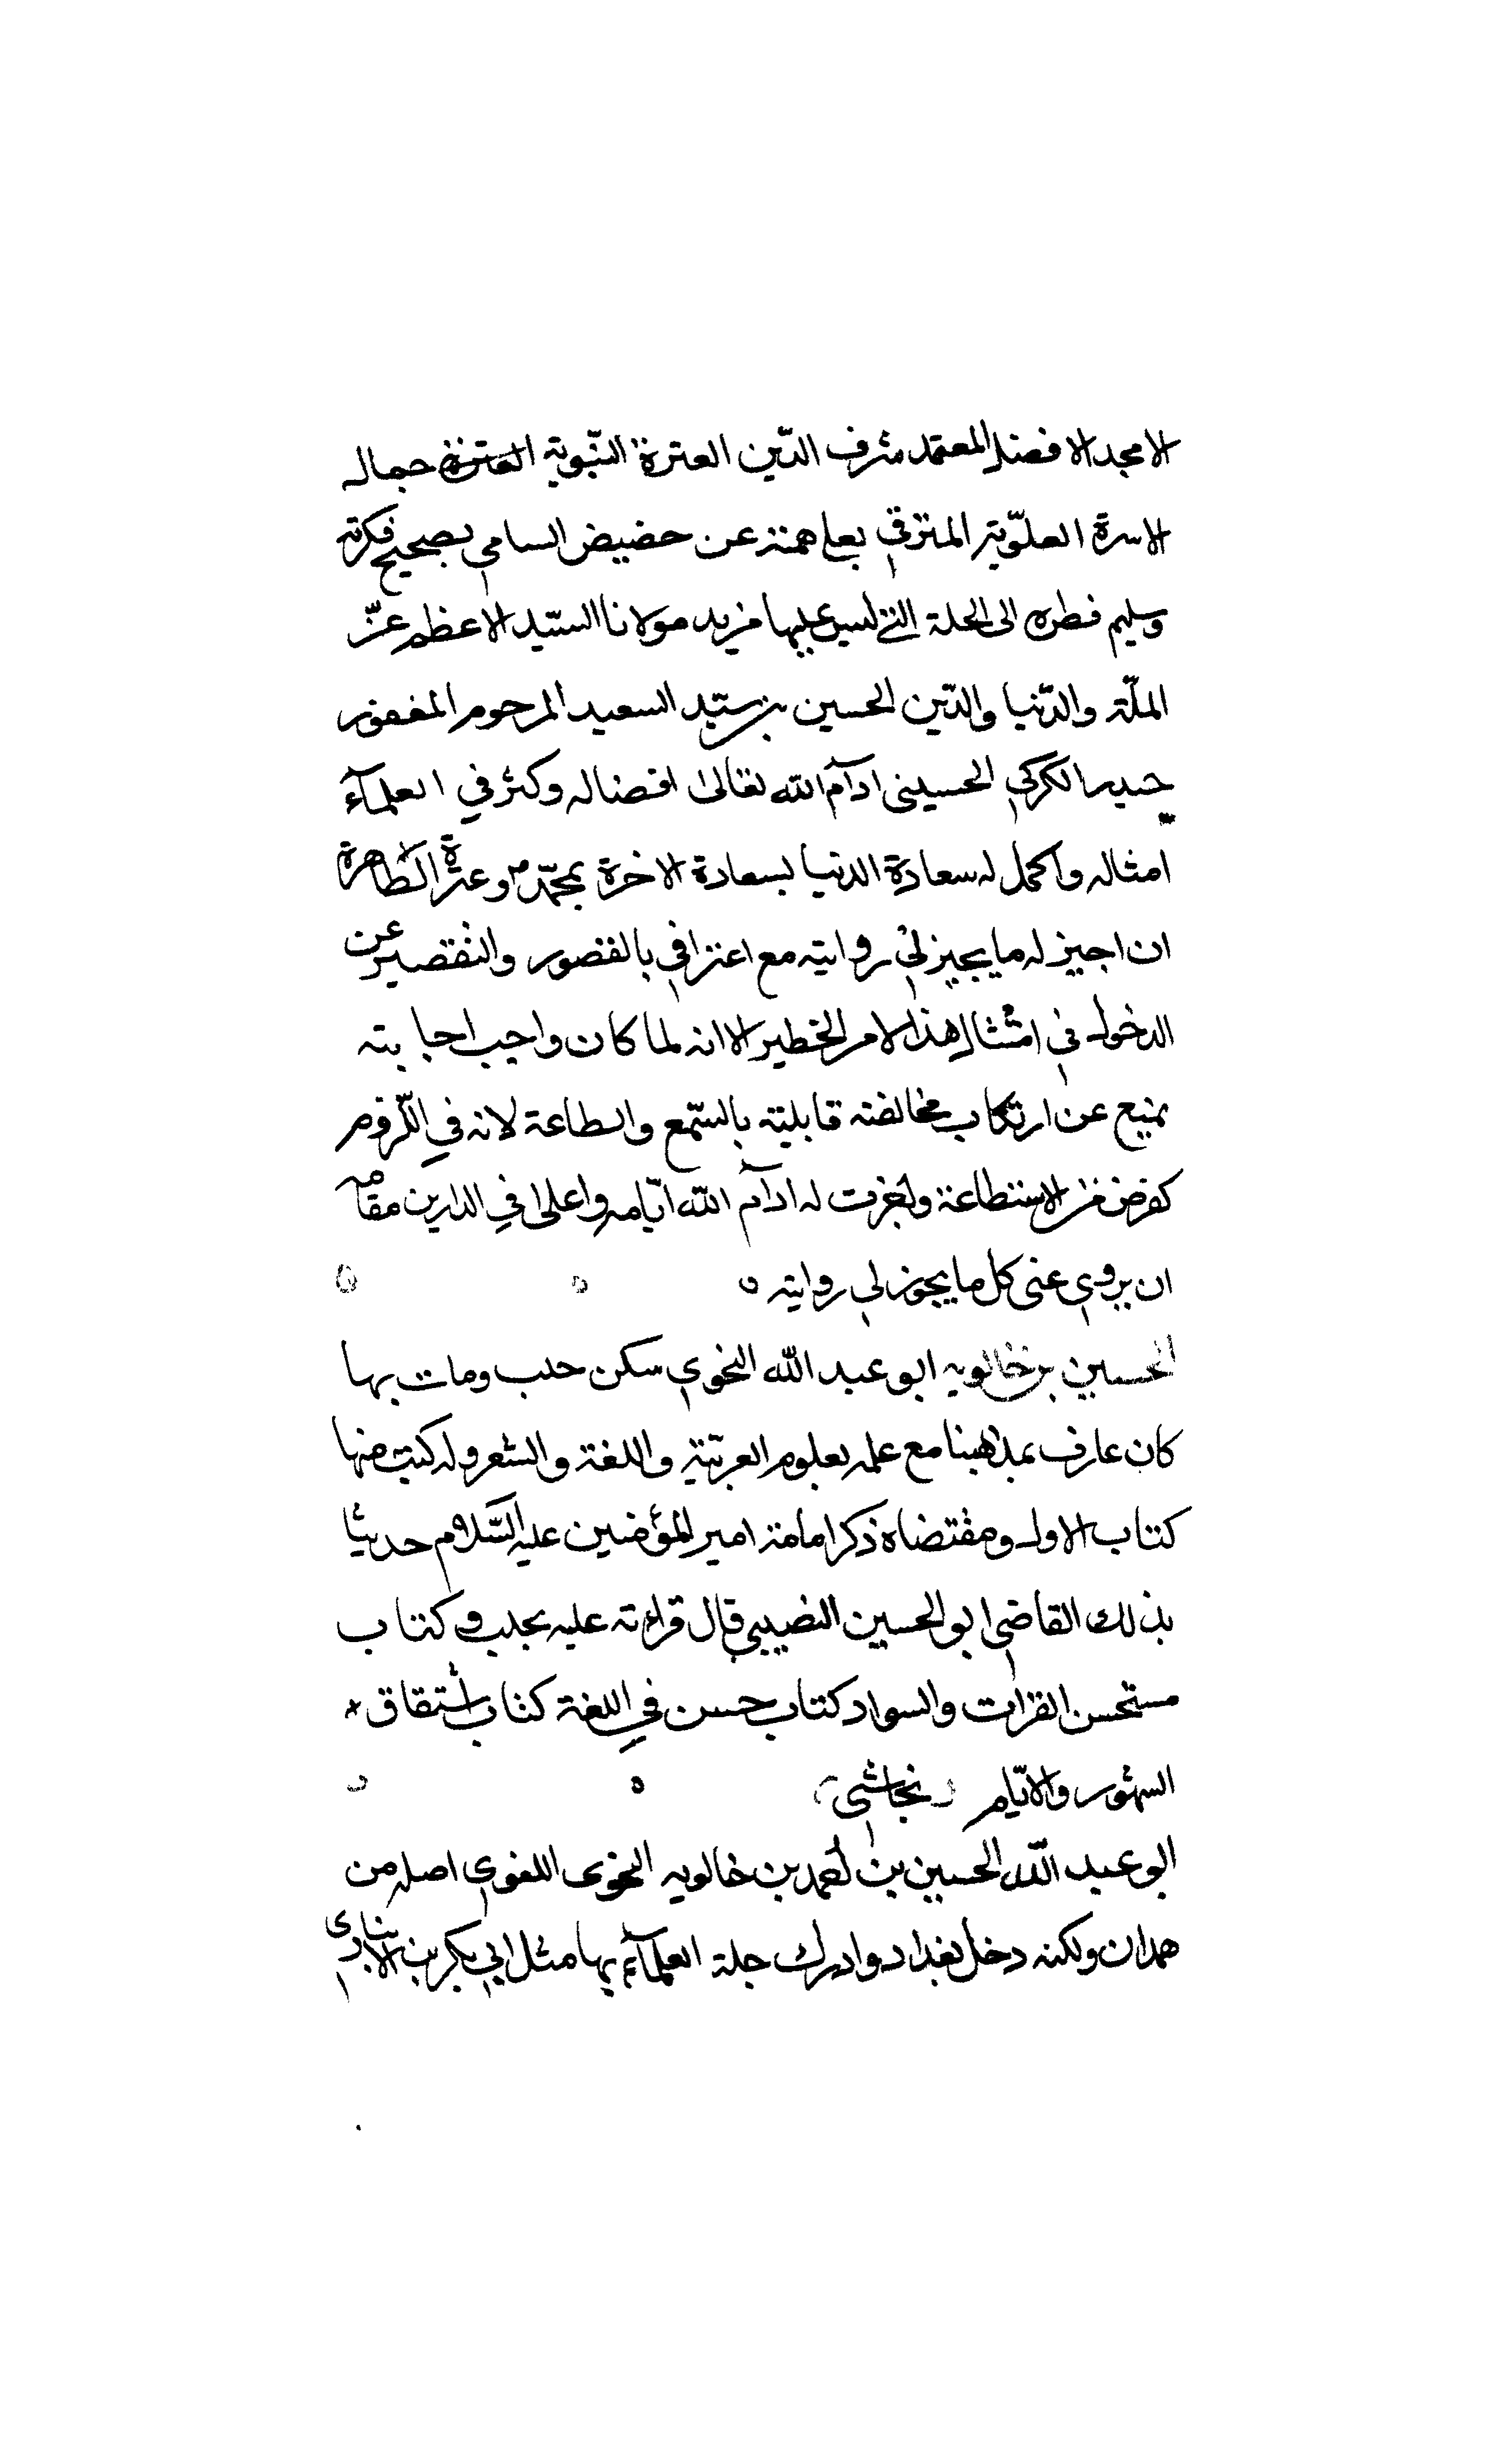 الامجد الافضل المعتمد شرف الدّين العترة النّبوية جمال
الاسرة العلّوية المترقي بعلي همته عن حضيض السامي بصحيح فكرته
وسليم فطره الى الحلة التي ليس عليها مزيد مولانا السّيد الاعظم عزّ
الملّة والدّنيا والدّين الحسين بن سيّد السعيد المرحوم المغفور
حيدر الكركي الحسيني ادآم الله تعالى افضاله وكثر في العلمآء
امثاله واكمل له سعادة الدنيا بسعادة الاخرة بمحمّد ص وعترة الطّاهرة
ان اجيز له ما يجيز لي روايته مع اعترافي بالقصور والتقصير عن
الدخول في امثال هذا الامر الخطير الا انه لما كان واجب اجابته
يمنع عن ارتكاب مخالفته قابليته بالسّمع والطاعة لانه في اللّزوم
كفرض الاستطاعة ولجزت له ادآم الله ايّامه واعلى في الدارين مقامه
ان يروي عنى كل ما يجوز لي روايته ه
الحسين بن خالويه ابو عبد الله النحوي سكن حلب ومات بها
كان عارف بمذهبنا مع علمه بعلوم العربيّة واللغة والشعر وله كتب منها
كتاب الاول ومقتضاه ذكر امامة امير المؤمنين عليه السّلام حدثيا
بذلك القاضي ابو الحسين النصيبي قال قراءته عليه بحلب وكتاب
مستحسن القرات والسواد كتاب حسن في اللغة كتاب اشتقاق
الشهور والايّام نجاشي ه
ابو عبد اللّه الحسين بن احمد بن خالويه النحوى اللغوي اصله من
همدان ولكنه دخل بغداد وادرك جلة العلمآء بها مثل ابي بكر بن الانباري